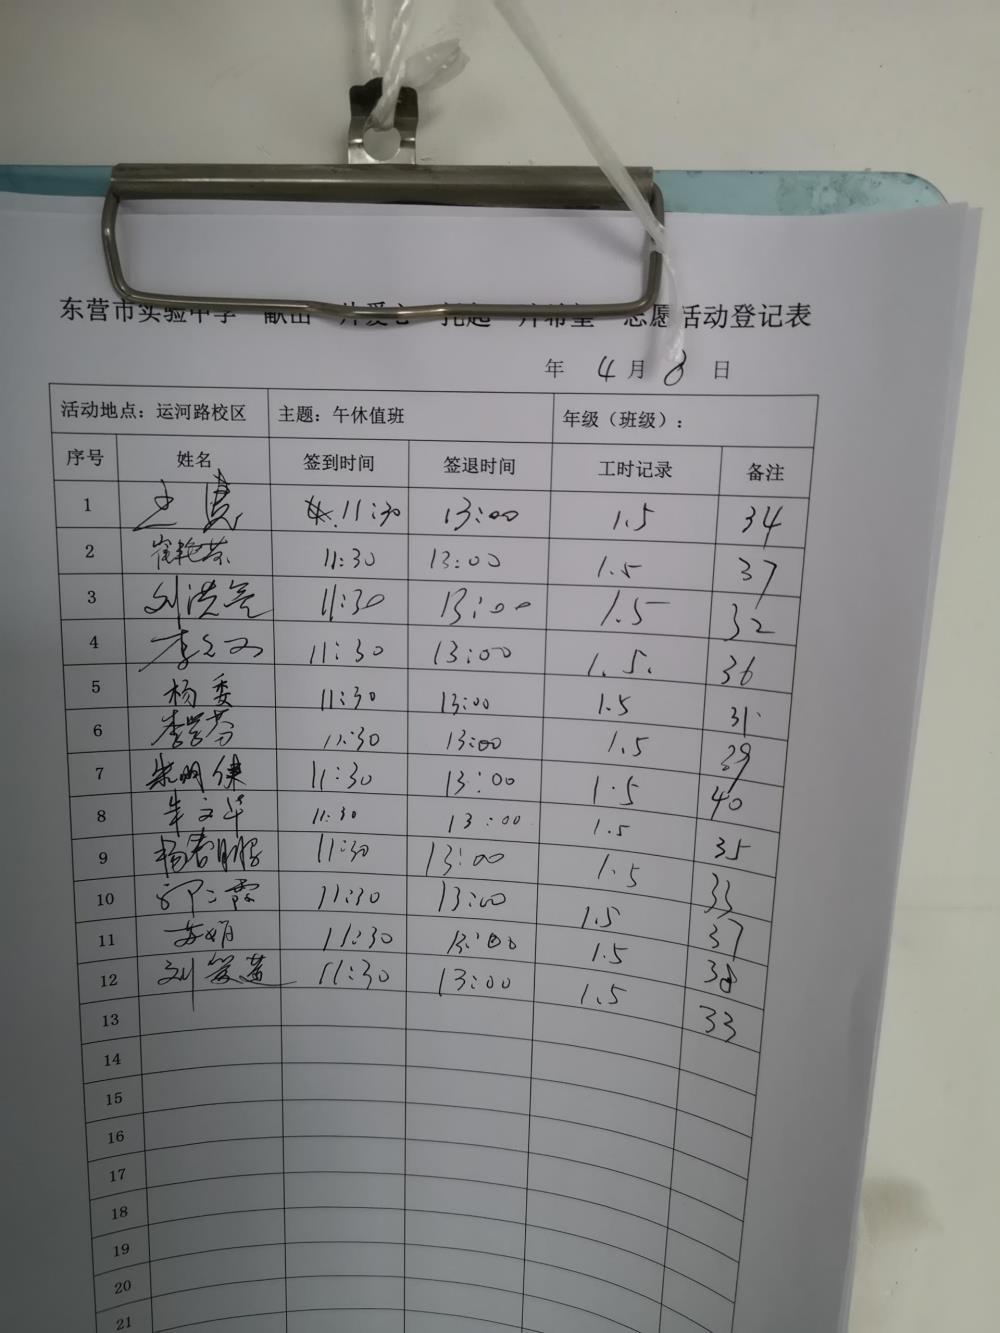 东营市实验中学“献出一片爱心 托起一片希望”志愿活动登记表
年 4 月 8 日
活动地点：运河路校区 主题：午休值班 年级（班级）：
序号 姓名 签到时间 签退时间 工时记录 备注
1 11:30 13:00 1.5 34
2 崔艳芬 11:30 13:00 1.5 37
3 刘洪亮 11:30 13:00 1.5 32
4 11:30 13:00 1.5. 36
5 杨委 11:30 13:00 1.5 31.
6 李学芬 11:30 13:00 1.5 39
7 11:30 13:00 1.5 40
8 朱文华 11:30 13:00 1.5 35
9 杨春鹏 11:30 13:00 1.5 33
10 11:30 13:00 1.5 37
11 苏娟 11:30 13:00 1.5 38
12 11:30 13:00 1.5 33
13
14
15
16
17
18
19
20
21